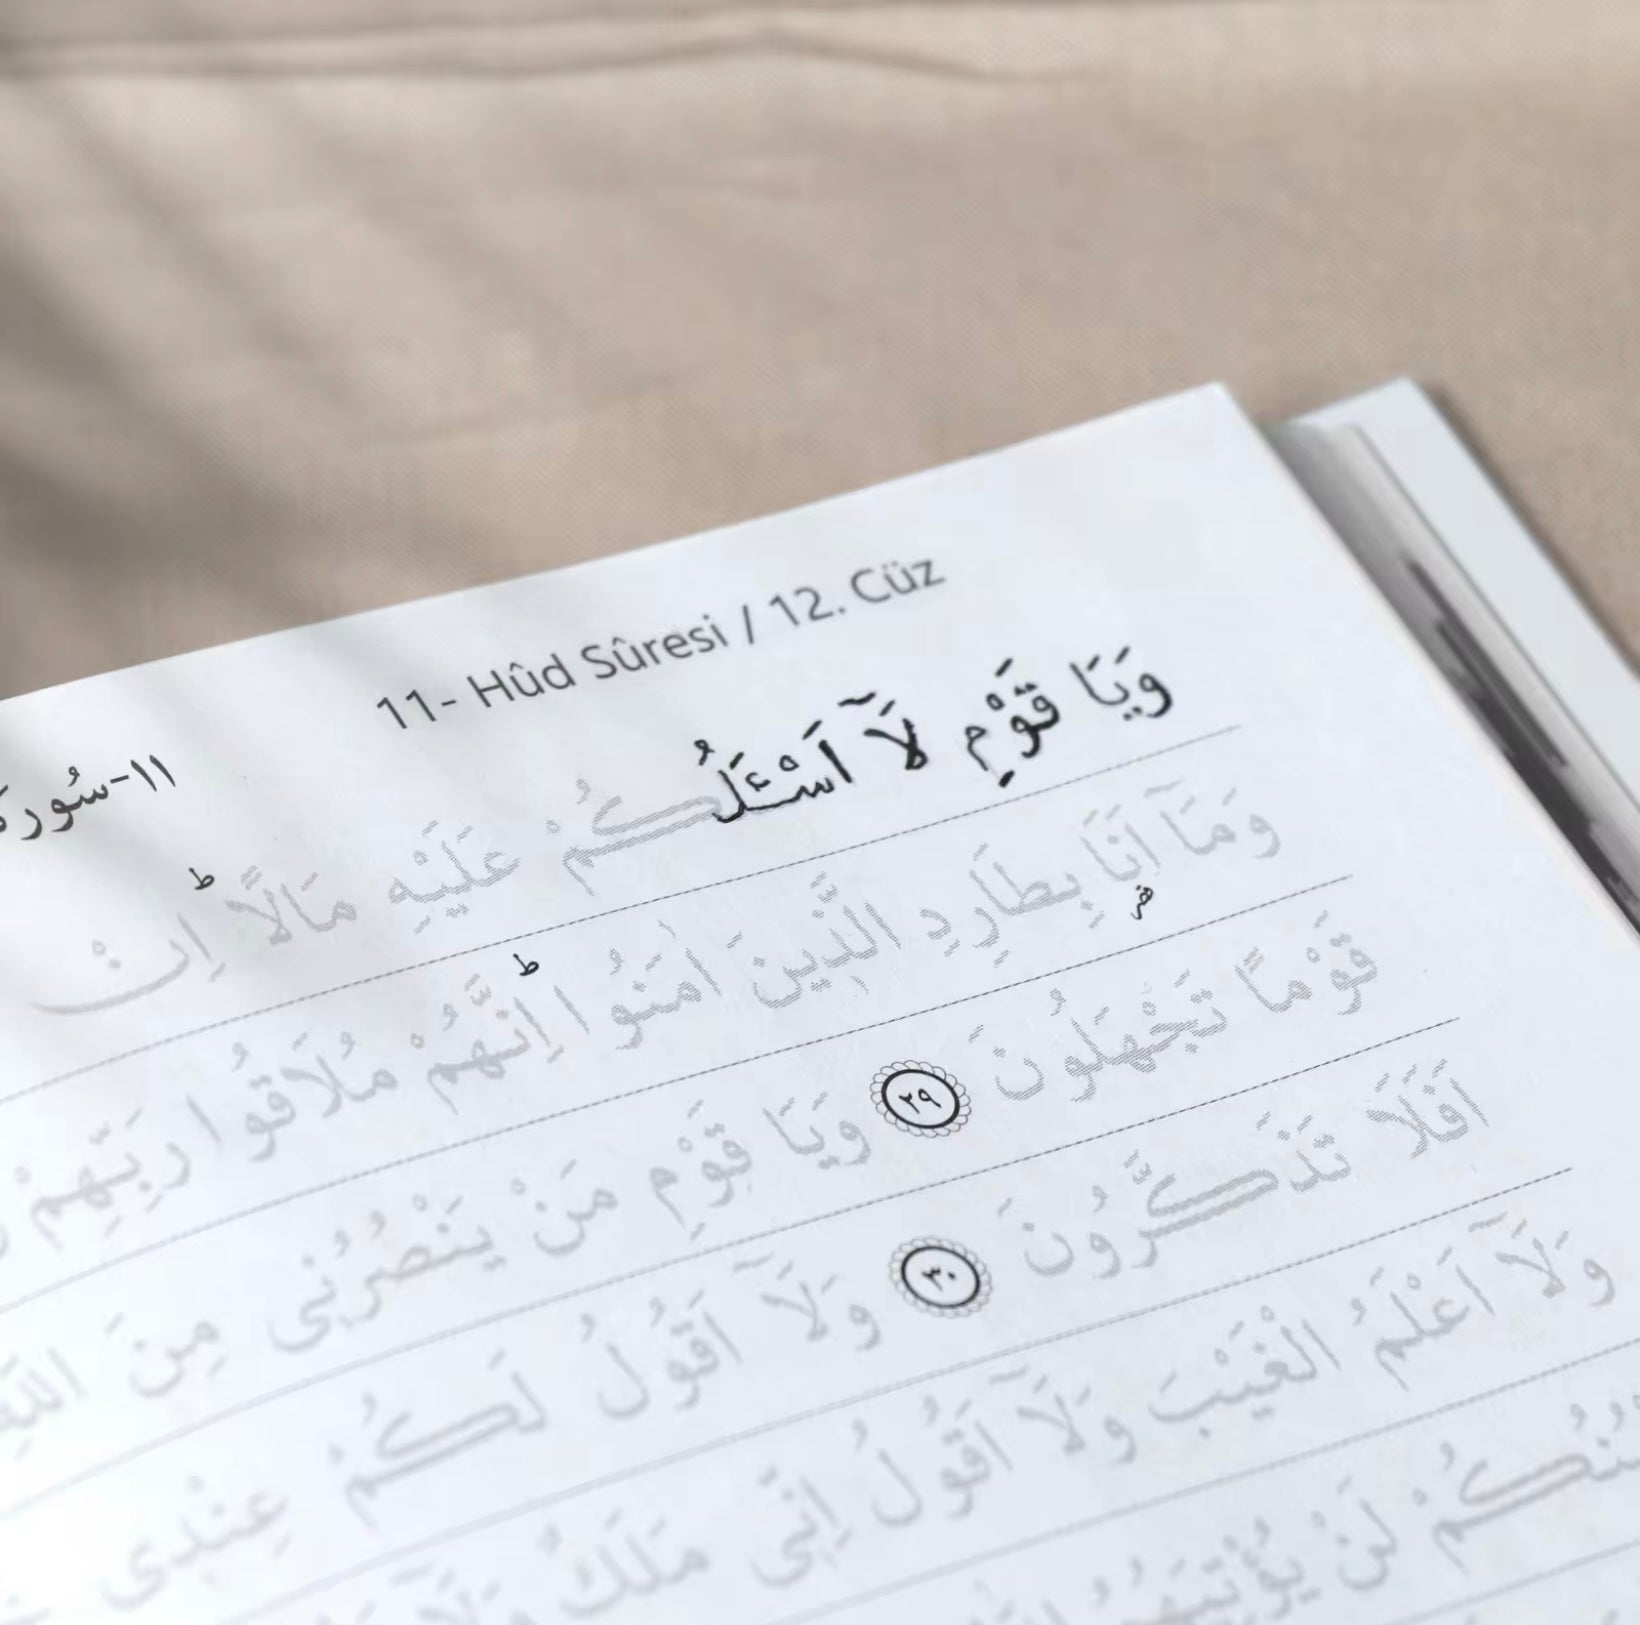 11- Hûd Sûresi / 12. Cüz
١١-سُورَة
وَيَا قَوْمِ لَٓا اَسْـَٔلُكُمْ عَلَيْهِ مَالًا ط اِنْ
وَمَٓا اَنَا۬ بِطَارِدِ الَّذ۪ينَ اٰمَنُوا ط اِنَّهُمْ مُلَاقُوا رَبِّهِمْ
قَوْمًا تَجْهَلُونَ ٢٩ وَيَا قَوْمِ مَنْ يَنْصُرُن۪ى مِنَ اللّٰهِ
اَفَلَا تَذَكَّرُونَ ٣٠ وَلَٓا اَقُولُ لَكُمْ عِنْد۪ى
وَلَٓا اَعْلَمُ الْغَيْبَ وَلَٓا اَقُولُ اِنّ۪ى مَلَكٌ
لَنْ يُؤْتِيَهُمُ